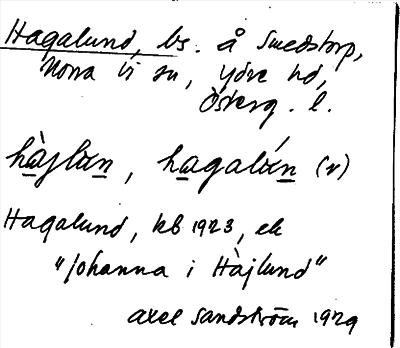 Hagalund, bs. å Smedstorp,
Norra Vi sn, Ydre hd,
Österg. l.
hàjlun, hagalún (r)
Hagalund, kb 1923, ek
"Johanna i Hàjlund"
Axel Sandström 1929